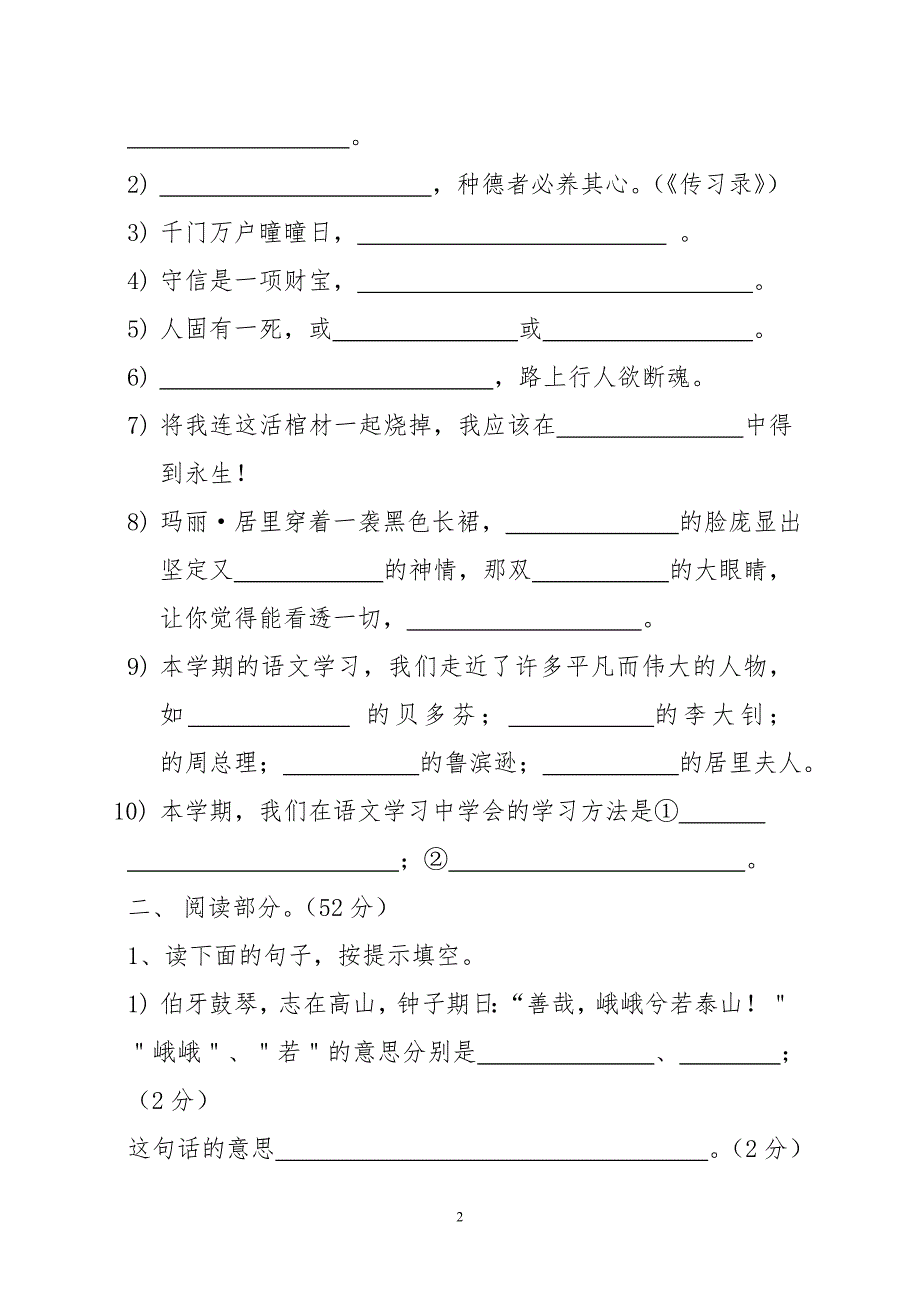 ____________________。
2) ____________________，种德者必养其心。（《传习录》）
3) 千门万户曈曈日，____________________ 。
4) 守信是一项财宝，____________________。
5) 人固有一死，或____________________或____________________。
6) ____________________，路上行人欲断魂。
7) 将我连这活棺材一起烧掉，我应该在____________________中得
到永生！
8) 玛丽·居里穿着一袭黑色长裙，____________________的脸庞显出
坚定又____________________的神情，那双____________________的大眼睛，
让你觉得能看透一切，____________________。
9) 本学期的语文学习，我们走近了许多平凡而伟大的人物，
如____________________ 的贝多芬；____________________的李大钊；
的周总理；____________________的鲁滨逊；____________________的居里夫人。
10) 本学期，我们在语文学习中学会的学习方法是①________
____________________；②____________________。
二、 阅读部分。（52 分）
1、读下面的句子，按提示填空。
1) 伯牙鼓琴，志在高山，钟子期日：“善哉，峨峨兮若泰山！＂
＂峨峨＂、＂若＂的意思分别是____________________、__________；
（2 分）
这句话的意思____________________。（2 分）
2